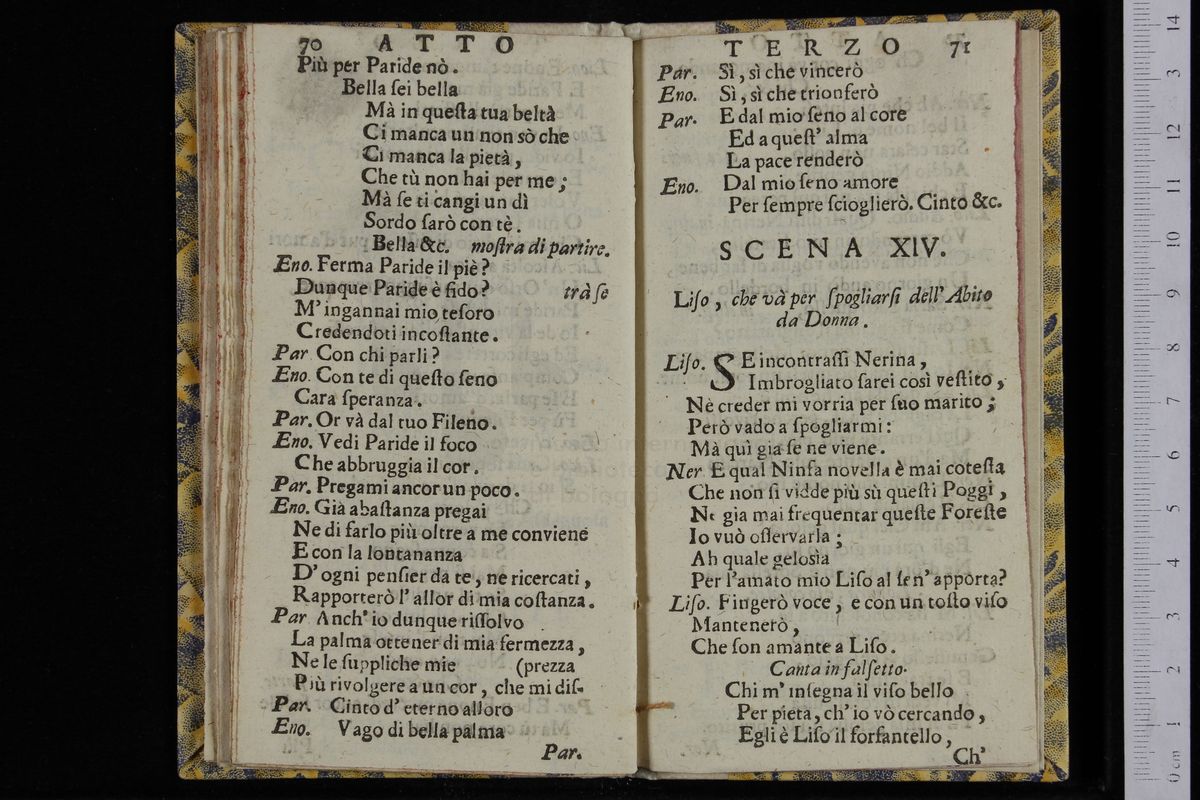 70 ATTO
Più per Paride nò.
Bella ſei bella
Mà in queſta tua beltà
Ci manca un non sò che
Ci manca la pietà,
Che tù non hai per me;
Mà ſe ti cangi un dì
Sordo ſarò con tè.
Bella &c. moſtra di partire.
Eno. Ferma Paride il piè?
Dunque Paride è fido? trà ſe
M' ingannai mio teſoro
Credendoti incoſtante.
Par Con chi parli?
Eno. Con te di queſto ſeno
Cara ſperanza.
Par. Or và dal tuo Fileno.
Eno. Vedi Paride il foco
Che abbruggia il cor.
Par. Pregami ancor un poco.
Eno. Già abaſtanza pregai
Ne di farlo più oltre a me conviene
E con la lontananza
D' ogni penſier da te, ne ricercati,
Rapporterò l' allor di mia coſtanza.
Par Anch' io dunque riſſolvo
La palma ottener di mia fermezza,
Ne le ſuppliche mie (prezza
Più rivolgere a un cor, che mi diſ-
Par. Cinto d' eterno alloro
Eno. Vago di bella palma
Par.
TERZO 71
Par. Sì, sì che vincerò
Eno. Sì, sì che trionferò
Par. E dal mio ſeno al core
Ed a queſt' alma
La pace renderò
Eno. Dal mio ſeno amore
Per ſempre ſcioglierò. Cinto &c.
SCENA XIV.
Liſo, che và per ſpogliarſi dell' Abito
da Donna.
Liſo. SE incontraſſi Nerina,
Imbrogliato ſarei così veſtito,
Nè creder mi vorria per ſuo marito;
Però vado a ſpogliarmi:
Mà quì gia ſe ne viene.
Ner E qual Ninfa novella è mai coteſta
Che non ſi vidde più sù queſti Poggi,
Ne gia mai frequentar queſte Foreſte
Io vuò oſſervarla;
Ah quale gelosìa
Per l'amato mio Liſo al ſen' apporta?
Liſo. Fingerò voce, e con un toſto viſo
Mantenerò,
Che ſon amante a Liſo.
Canta in falſetto.
Chi m' inſegna il viſo bello
Per pietà, ch' io vò cercando,
Egli è Liſo il forfantello,
Ch'
0 cm 1 2 3 4 5 6 7 8 9 10 11 12 13 14